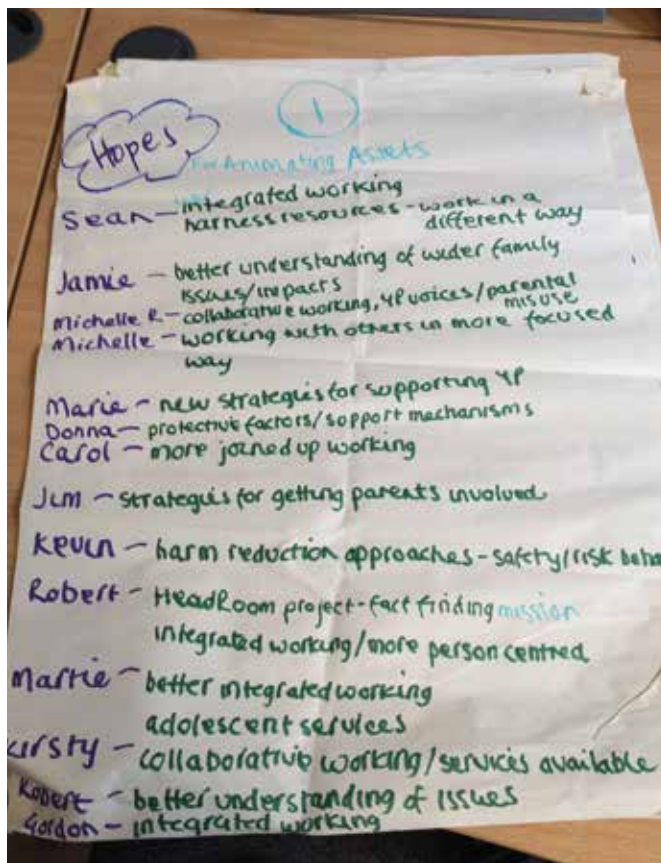 1
Hopes
for Animating Assets
Sean - integrated working
harness resources - work in a
different way
Jamie - better understanding of wider family
issues/impacts
Michelle R - collaborative working, YP voices/parental
misuse
Michelle - working with others in more focused
way
Marie - new strategies for supporting YP
Donna - protective factors/support mechanisms
Carol - more joined up working
Jim - strategies for getting parents involved
Kevin - harm reduction approaches - safety/risk beha
Robert - HeadRoom project - fact finding mission
integrated working/more person centred
Martie - better integrated working
adolescent services
irsty - collaborative working/services available
Robert - better understanding of issues
Gordon - integrated working